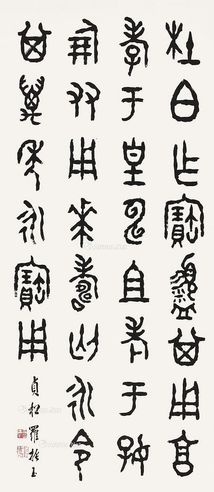 杜白乍寶盨其用亯
孝于皇神且考于好
倗友用𠦪壽匄永令
其萬年永寶用
貞松羅振玉